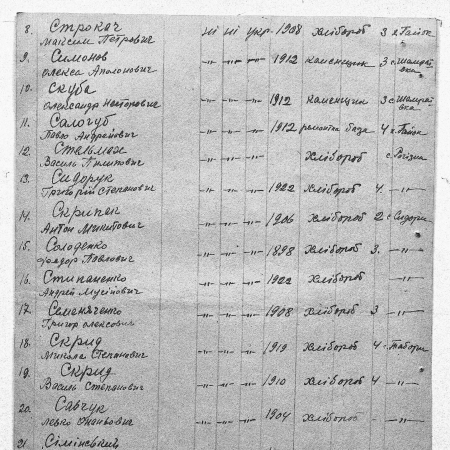 8. Строкач ні ні укр. 1908 хлібороб 3 с. Гайок
Максим Петрович
9. Симонов -"- -"- -"- 1912 каменщик 3 с. Шамраївка
Олекса Аполонович
10. Скуба -"- -"- -"- 1912 каменщик 3 с. Шамраївка
Олександра Несторович
11. Салогуб -"- -"- -"- 1912 4 х. Гайок
Павло Андрійович
12. Стельмах -"- -"- -"- хлібороб с. Рогізна
Василь Пилипович
13. Сидорук -"- -"- -"- 1922 хлібороб 4. -"-
Григорій Степанович
14. Скрипек -"- -"- -"- 1906 хлібороб 2 с. Сидори
Антон Микитович
15. Солоденко -"- -"- -"- 1898 хлібороб 3. -"-
Федор Павлович
16. Стипаненко -"- -"- -"- 1922 хлібороб -"-
Андрей Мусійович
17. Семеняченко -"- -"- -"- 1908 хлібороб 3 -"-
Григор Олексович
18. Скрид -"- -"- -"- 1919 хлібороб 4 -Табори
Микола Степанович
19. Скрид -"- -"- -"- 1910 хлібороб 4 -"-
Василь Степанович
20. Савчук -"- -"- -"- 1904 хлібороб -"-
Левко
21 Сімінський